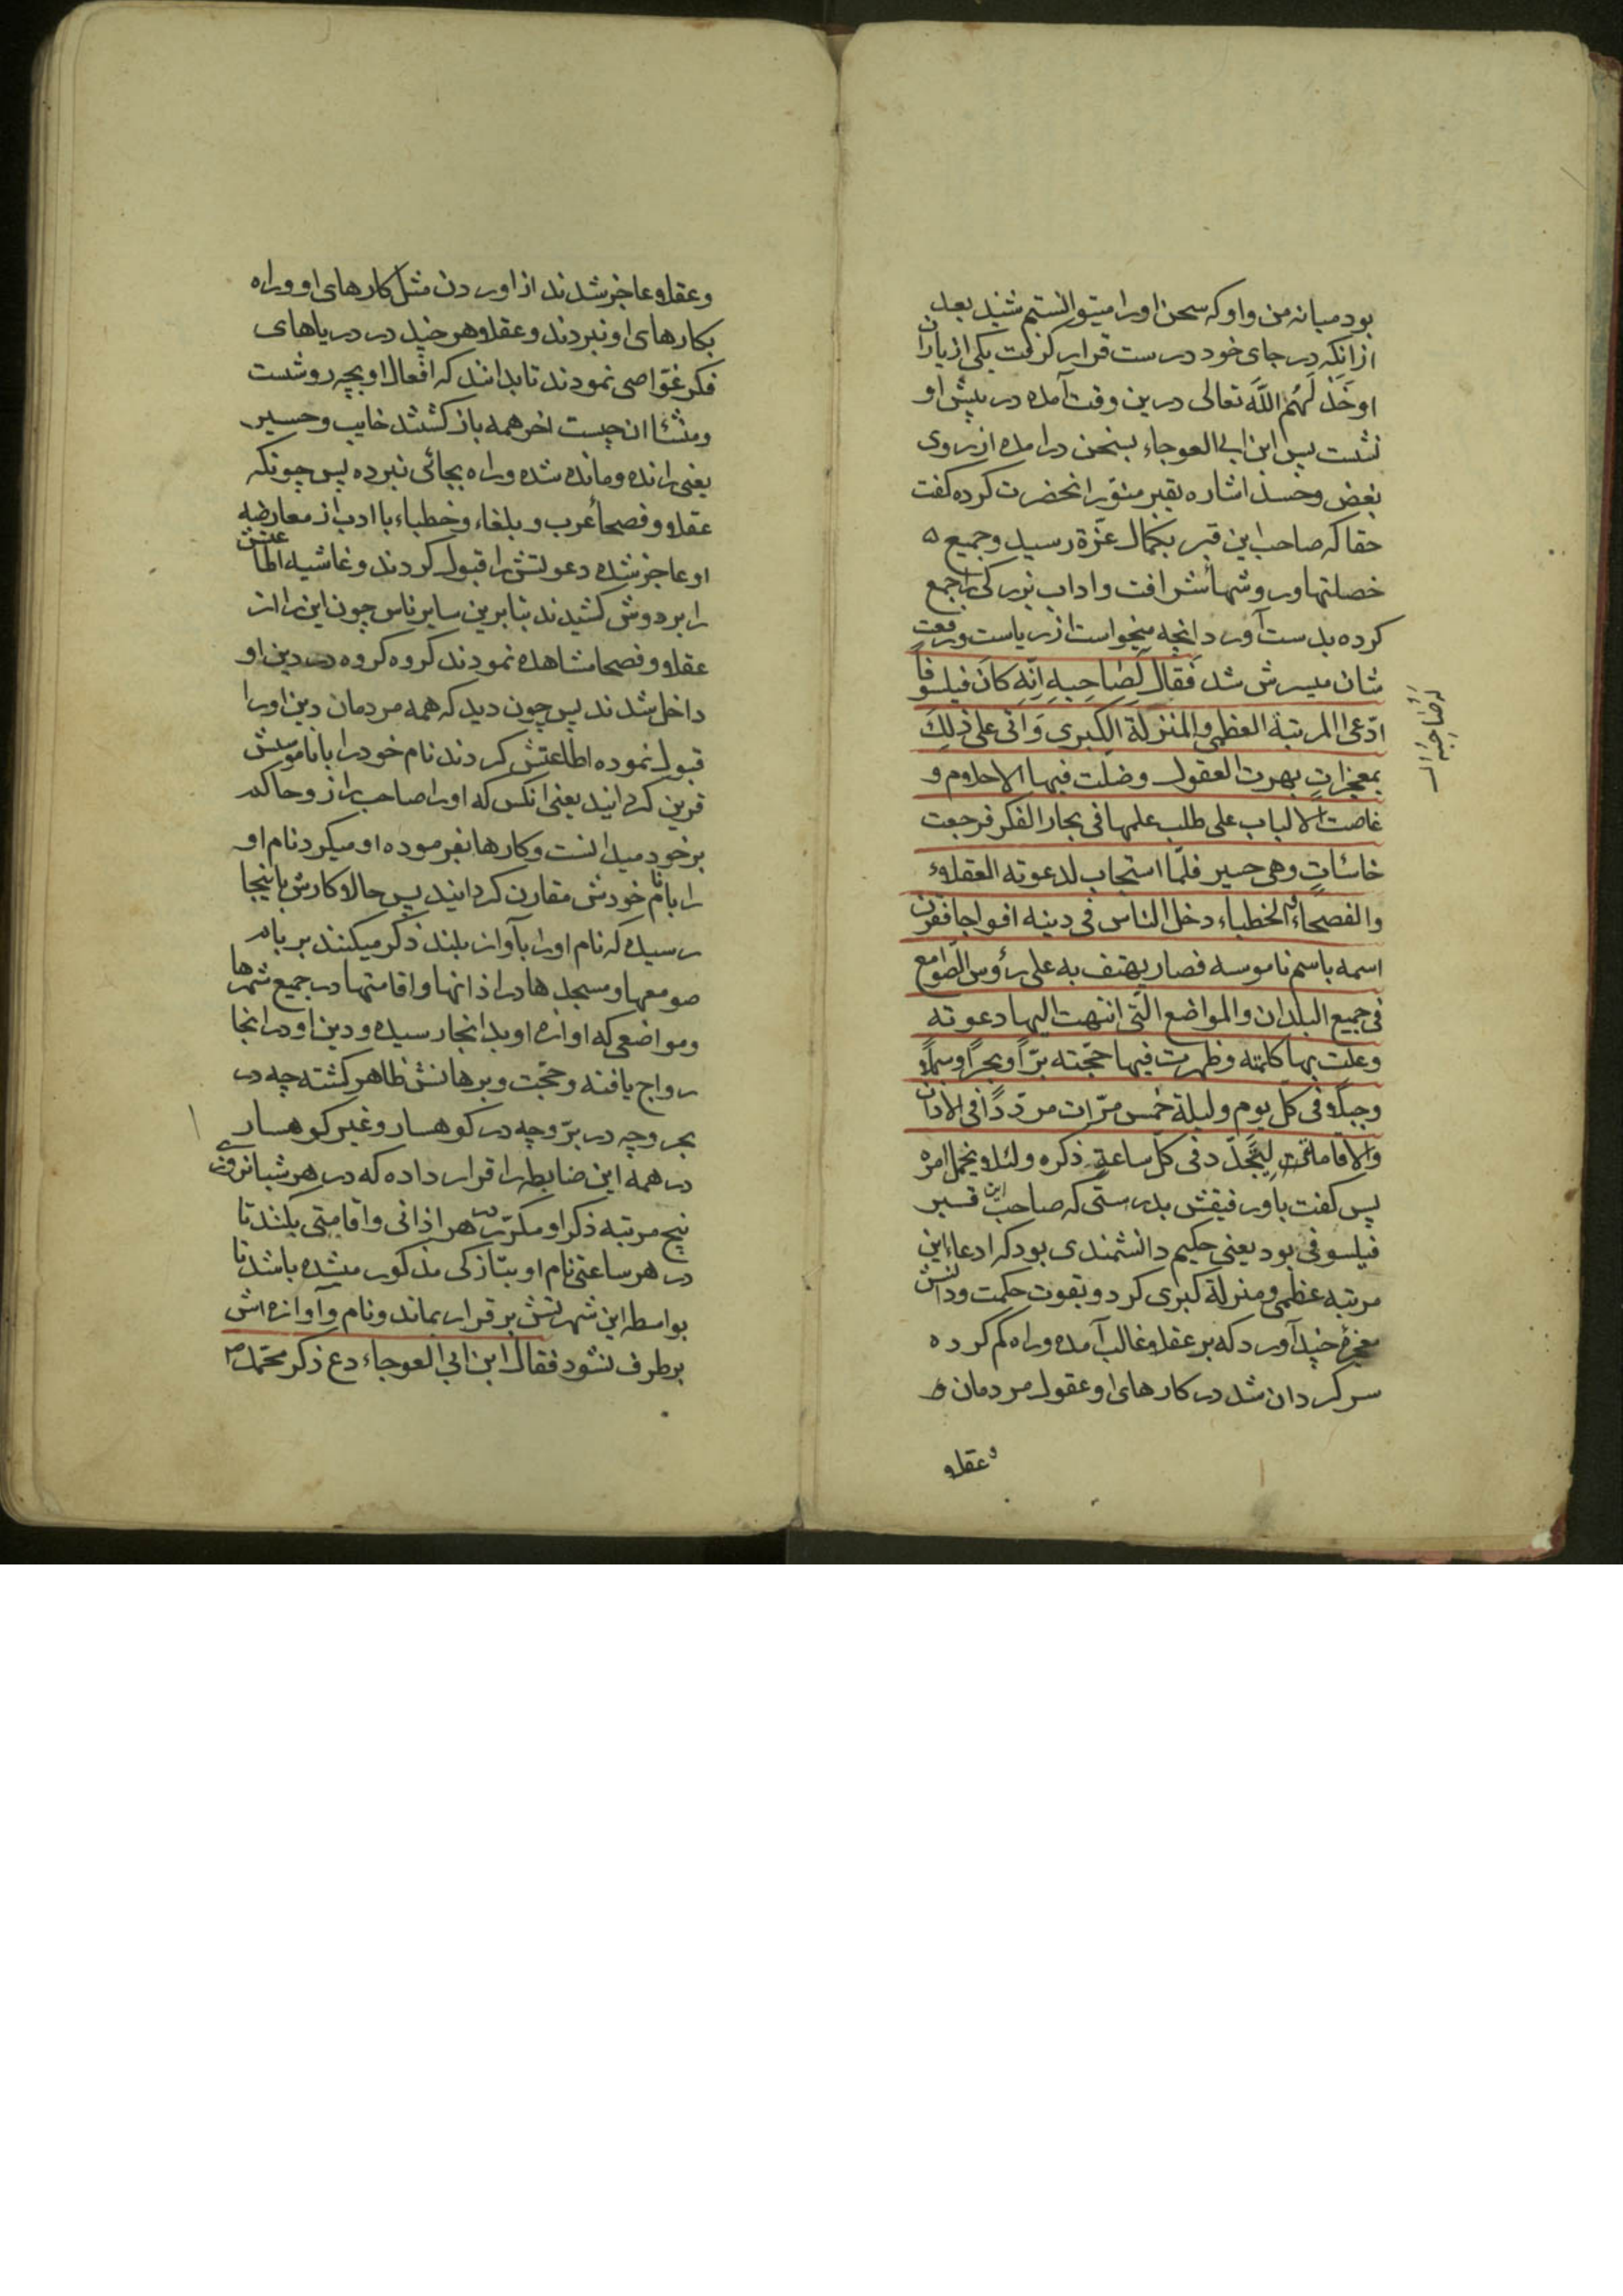 بود میانه من و او که سخن او را میتوانستم شنید بعد
از انکه در جای خود درست قرار گرفت یکی از یاران
او خَذَلَهُم اللّه تعالی درین وقت آمده در پیش او
نشست پس ابن ابی العوجاء بسخن درامده از روی
بغض و حسد اشاره بقبر منوّر انحضرت کرده گفت
حقا که صاحب این قبر بکمال عزّة رسید و جمیع
خصلتها و روشهاء شرافت و اداب بزرگی را جمع
کرده بدست آورد و انچه میخواست از ریاست و رفعت
شان میسرش شد فقال لصاحبِهِ اِنّه کانَ فیلسوفًا
ادّعی المرتبة العظمی و المنزلة الکبری وَ اتی علی ذلِکَ
بمعجزاتٍ بهرت العقول وضلت فیها الاحلام و
غاصت الالباب علی طلب علمها فی بحار الفکر فرجعت
خاسئاتٍ وهی حسیر فلمّا استجاب لدعوته العقلاء
والفصحاء والخطباء دخل الناس فی دینه افواجا فقرن
اسمه باسم ناموسه فصار یهتف به علی رؤس الصّوامع
فی جمیع البلدان والمواضع الّتی انتهت الیها دعوته
وعلت بها کلمته وظهرت فیها حجّته برّاً وبحراً وسهلاً
وجبلاً فی کل یوم ولیلة خمس مرّات مردّدًا فی الاذان
والاقامة لیتجدّد فی کلّ ساعةٍ ذکره ولئلا یخمل امره
پس گفت باو رفیقش بدرستی که صاحب این قبر
فیلسوفی بود یعنی حکیم دانشمندی بود که ادعاء این
مرتبه عظمی و منزلة کبری کرد و بقوت حکمت و دانش
معجزهٔ چند آورد که بر عقلا غالب آمده و راه گم کرده
سرگردان شد در کارهای او عقول مردمان و
و عقلا
لِصَاحِبِهِ
و عقلا و عاجز شدند از اوردن مثل کارهای او و راه
بکارهای او نبردند و عقلا هر چند در دریاهای
فکر غوّاصی نمودند تا بدانند که افعال او بچه روشست
و منشاء ان چیست اخر همه باز گشتند خایب و حسیر
یعنی رانده و مانده شده و راه بجائی نبرده پس چونکه
عقلا و فصحاء عرب و بلغاء و خطباء با ادب از معارضه
او عاجز شده دعوتش را قبول کردند و غاشیه اطاعتش
را بر دوش کشیدند بنابرین سایر ناس چون این را از
عقلا و فصحا مشاهده نمودند گروه گروه در دین او
داخل شدند پس چون دید که همه مردمان دین او را
قبول نموده اطاعتش کردند نام خود را با ناموسش
قرین گردانید یعنی انکس که او را صاحب راز و حاکم
بر خود میدانست و کارها بفرموده او میکرد نام او
را با نام خودش مقارن گردانید پس حالا کارش باینجا
رسیده که نام او را بآواز بلند ذکر میکنند بر بام
صومعها و مسجدها در اذانها و اقامتها در جمیع شهرها
و مواضعی که اوازه او بدانجا رسیده و دین او در انجا
رواج یافته و حجّت و برهانش ظاهر گشته چه در
بحر و چه در برّ و چه در کوهسار و غیر کوهسار
در همه این ضابطه را قرار داده که در هر شبانروزی
پنج مرتبه ذکر او مکرّر در هر اذانی و اقامتی بکنند تا
در هر ساعتی نام او بتازگی مذکور میشده باشد تا
بواسطه این شهرتش برقرار بماند و نام و آوازه اش
برطرف نشود فقال ابن ابی العوجاء دع ذکر محمّد ص